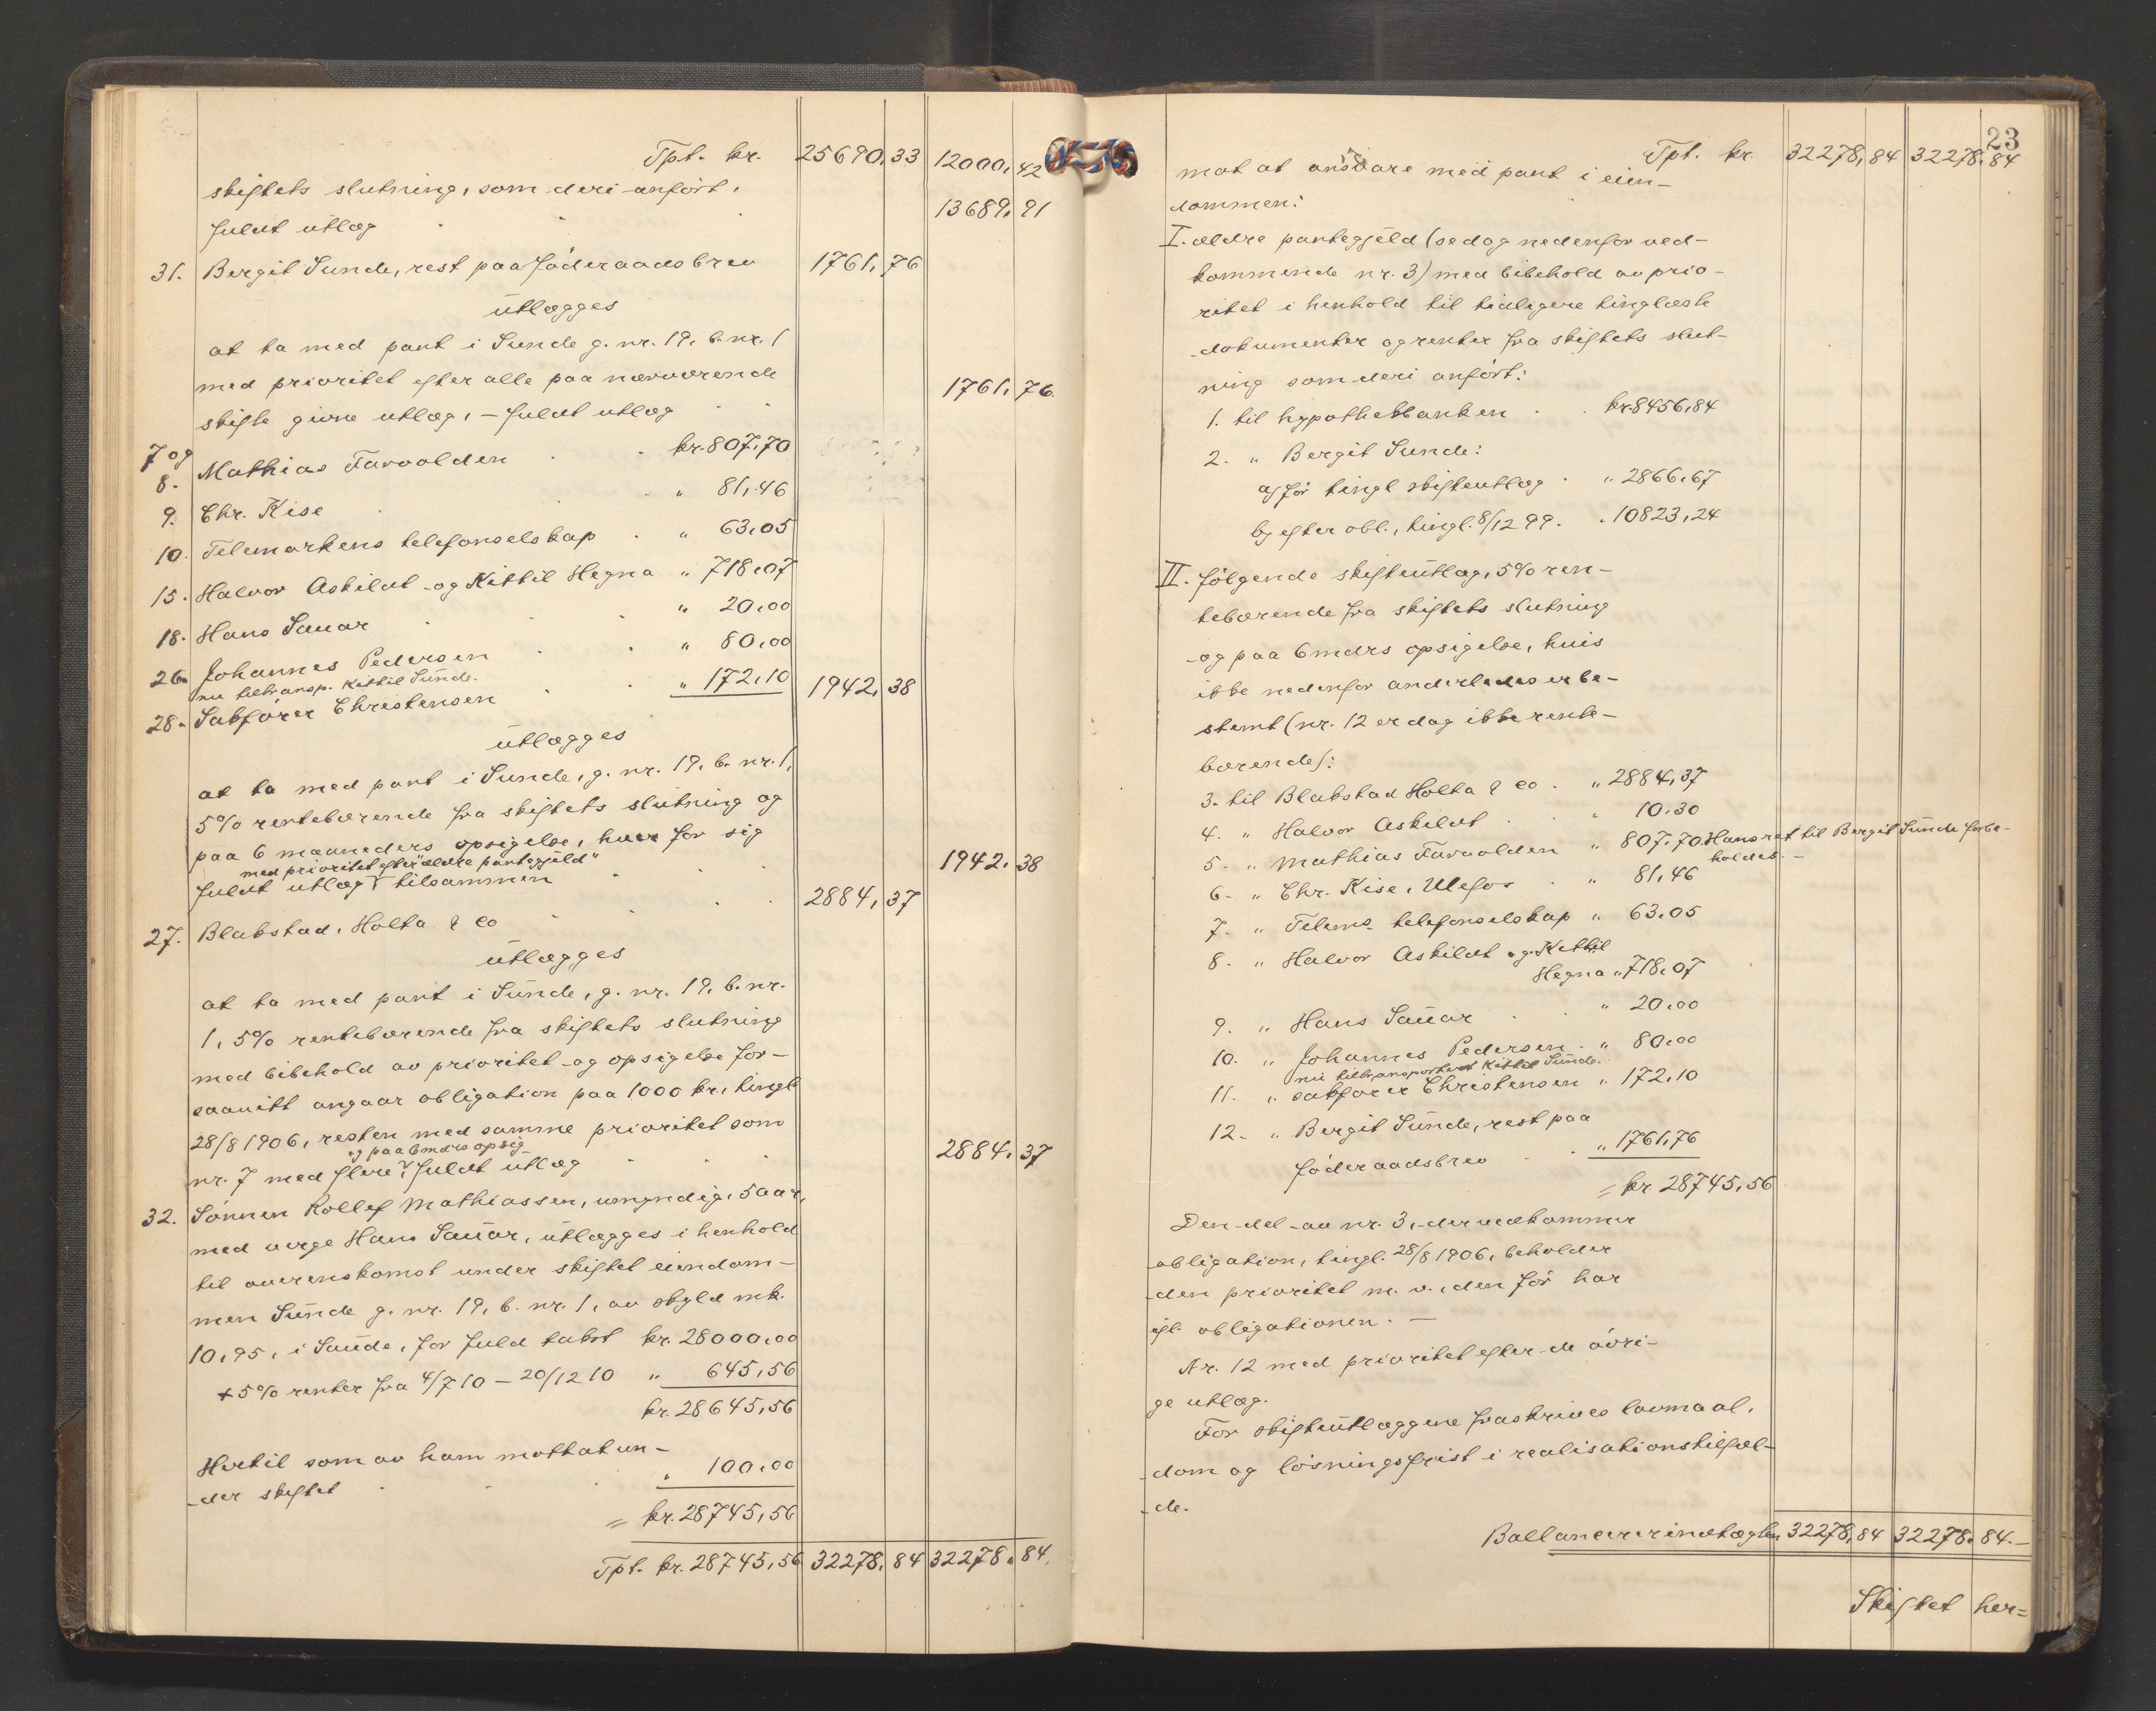 Tpt. kr. 25690,33 12000,42
skiftets slutning, som deri anført.
Fuldt utlæg 13689,91
31. Bergit Sunde, rest paa føderaadsbrev 1761,76
utlægges
at ta med pant i Sunde g. nr. 19, b. nr. 1
med prioritet efter alle paa nærværende
skifte givne utlæg. – Fuldt utlæg 1761,76
7 og
8. Mathias Tarvalden kr. 807,70
9. Chr. Kise " 81,46
10. Telemarkens telefonselskap " 63,05
15. Halvor Askildt og Kittil Hegna " 718,07
18. Hans Sauar " 20,00
26. Johannes Pedersen " 80,00
nu tiltransp. Kittil Sunde.
28. Sakfører Christensen " 172,10 1942,38
utlægges
at ta med pant i Sunde, g. nr. 19, b. nr. 1,
5% rentebærende fra skiftets slutning og
paa 6 maaneders opsigelse, hver for sig
med prioritet efter "ældre pantegjæld"
Fuldt utlæg tilsammen 1942,38
27. Blakstad, Holta & Co 2884,37
utlægges
at ta med pant i Sunde, g. nr. 19, b. nr.
1, 5% rentebærende fra skiftets slutning
med bibehold av prioritet og opsigelse for-
saavitt angaar obligation paa 1000 kr., tingl.
28/8 1906, resten med samme prioritet som
og paa 6 mdrs opsig.
nr. 7 med flere, fuldt utlæg 2884,37
32. Sønnen Rollef Mathiassen, umyndig, 5 aar,
med verge Hans Sauar, utlægges i henhold
til overenskomst under skiftet eiendom-
men Sunde g. nr. 19, b. nr. 1, av skyld mk.
10,95, i Saude, for fuld takst kr. 28000,00
+ 5% renter fra 4/7 10 – 20/12 10 " 645,56
kr. 28645,56
Hertil som av ham mottat un-
der skiftet " 100,00
= kr. 28745,56
Tpt. kr. 28745,56 32278,84 32278,84
23
Tpt. kr. 32278,84 32278,84
mot at ansvare med pant i eien-
dommen:
I. ældre pantegjæld (se dog nedenfor ved-
kommende nr. 3) med bibehold av prio-
ritet i henhold til tidligere tinglæste
dokumenter og renter fra skiftets slut-
ning som deri anført:
1. til hypothekbanken kr 8456,84
2. " Bergit Sunde:
a) før tingl skifteutlæg " 2866,67
b) efter obl., tingl. 8/12 99. " 10823,24
II. følgende skifteutlæg, 5% ren-
tebærende fra skiftets slutning
og paa 6 mdrs opsigelse, hvis
ikke nedenfor anderledes er be-
stemt (nr. 12 er dog ikke rente-
bærende):
3. til Blakstad Holta & Co. " 2884,37
4. " Halvor Askildt " 10,30
5. " Mathias Tarvalden " 807,70. Hans ret til Bergit Sunde forbe-
holdes. –
6. " Chr. Kise, Ulefos " 81,46
7. " Telems telefonselskap " 63,05
8. " Halvor Askildt og Kittil
Hegna " 718,07
9. " Hans Sauar " 20,00
10. " Johannes Pedersen " 80,00
nu tiltransportert Kittil Sunde.
11. " sakfører Christensen " 172,10
12. " Bergit Sunde, rest paa
føderaadsbrev " 1761,76
= kr. 28745,56
Den del av nr. 3, der vedkommer
obligation, tingl. 28/8 1906, beholder
den prioritet m. v., den før har
ifl. obligationen. –
Nr. 12 med prioritet efter de øvri-
ge utlæg.
For skifteutlæggene fraskrives lovmaal,
dom og løsningsfrist i realisationstilfæl-
de.
Ballancerer indtægten 32278,84 32278,84. –
Skiftet her=